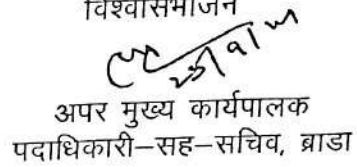 विश्वासभाजन
अपर मुख्य कार्यपालक
पदाधिकारी–सह–सचिव, ब्राडा